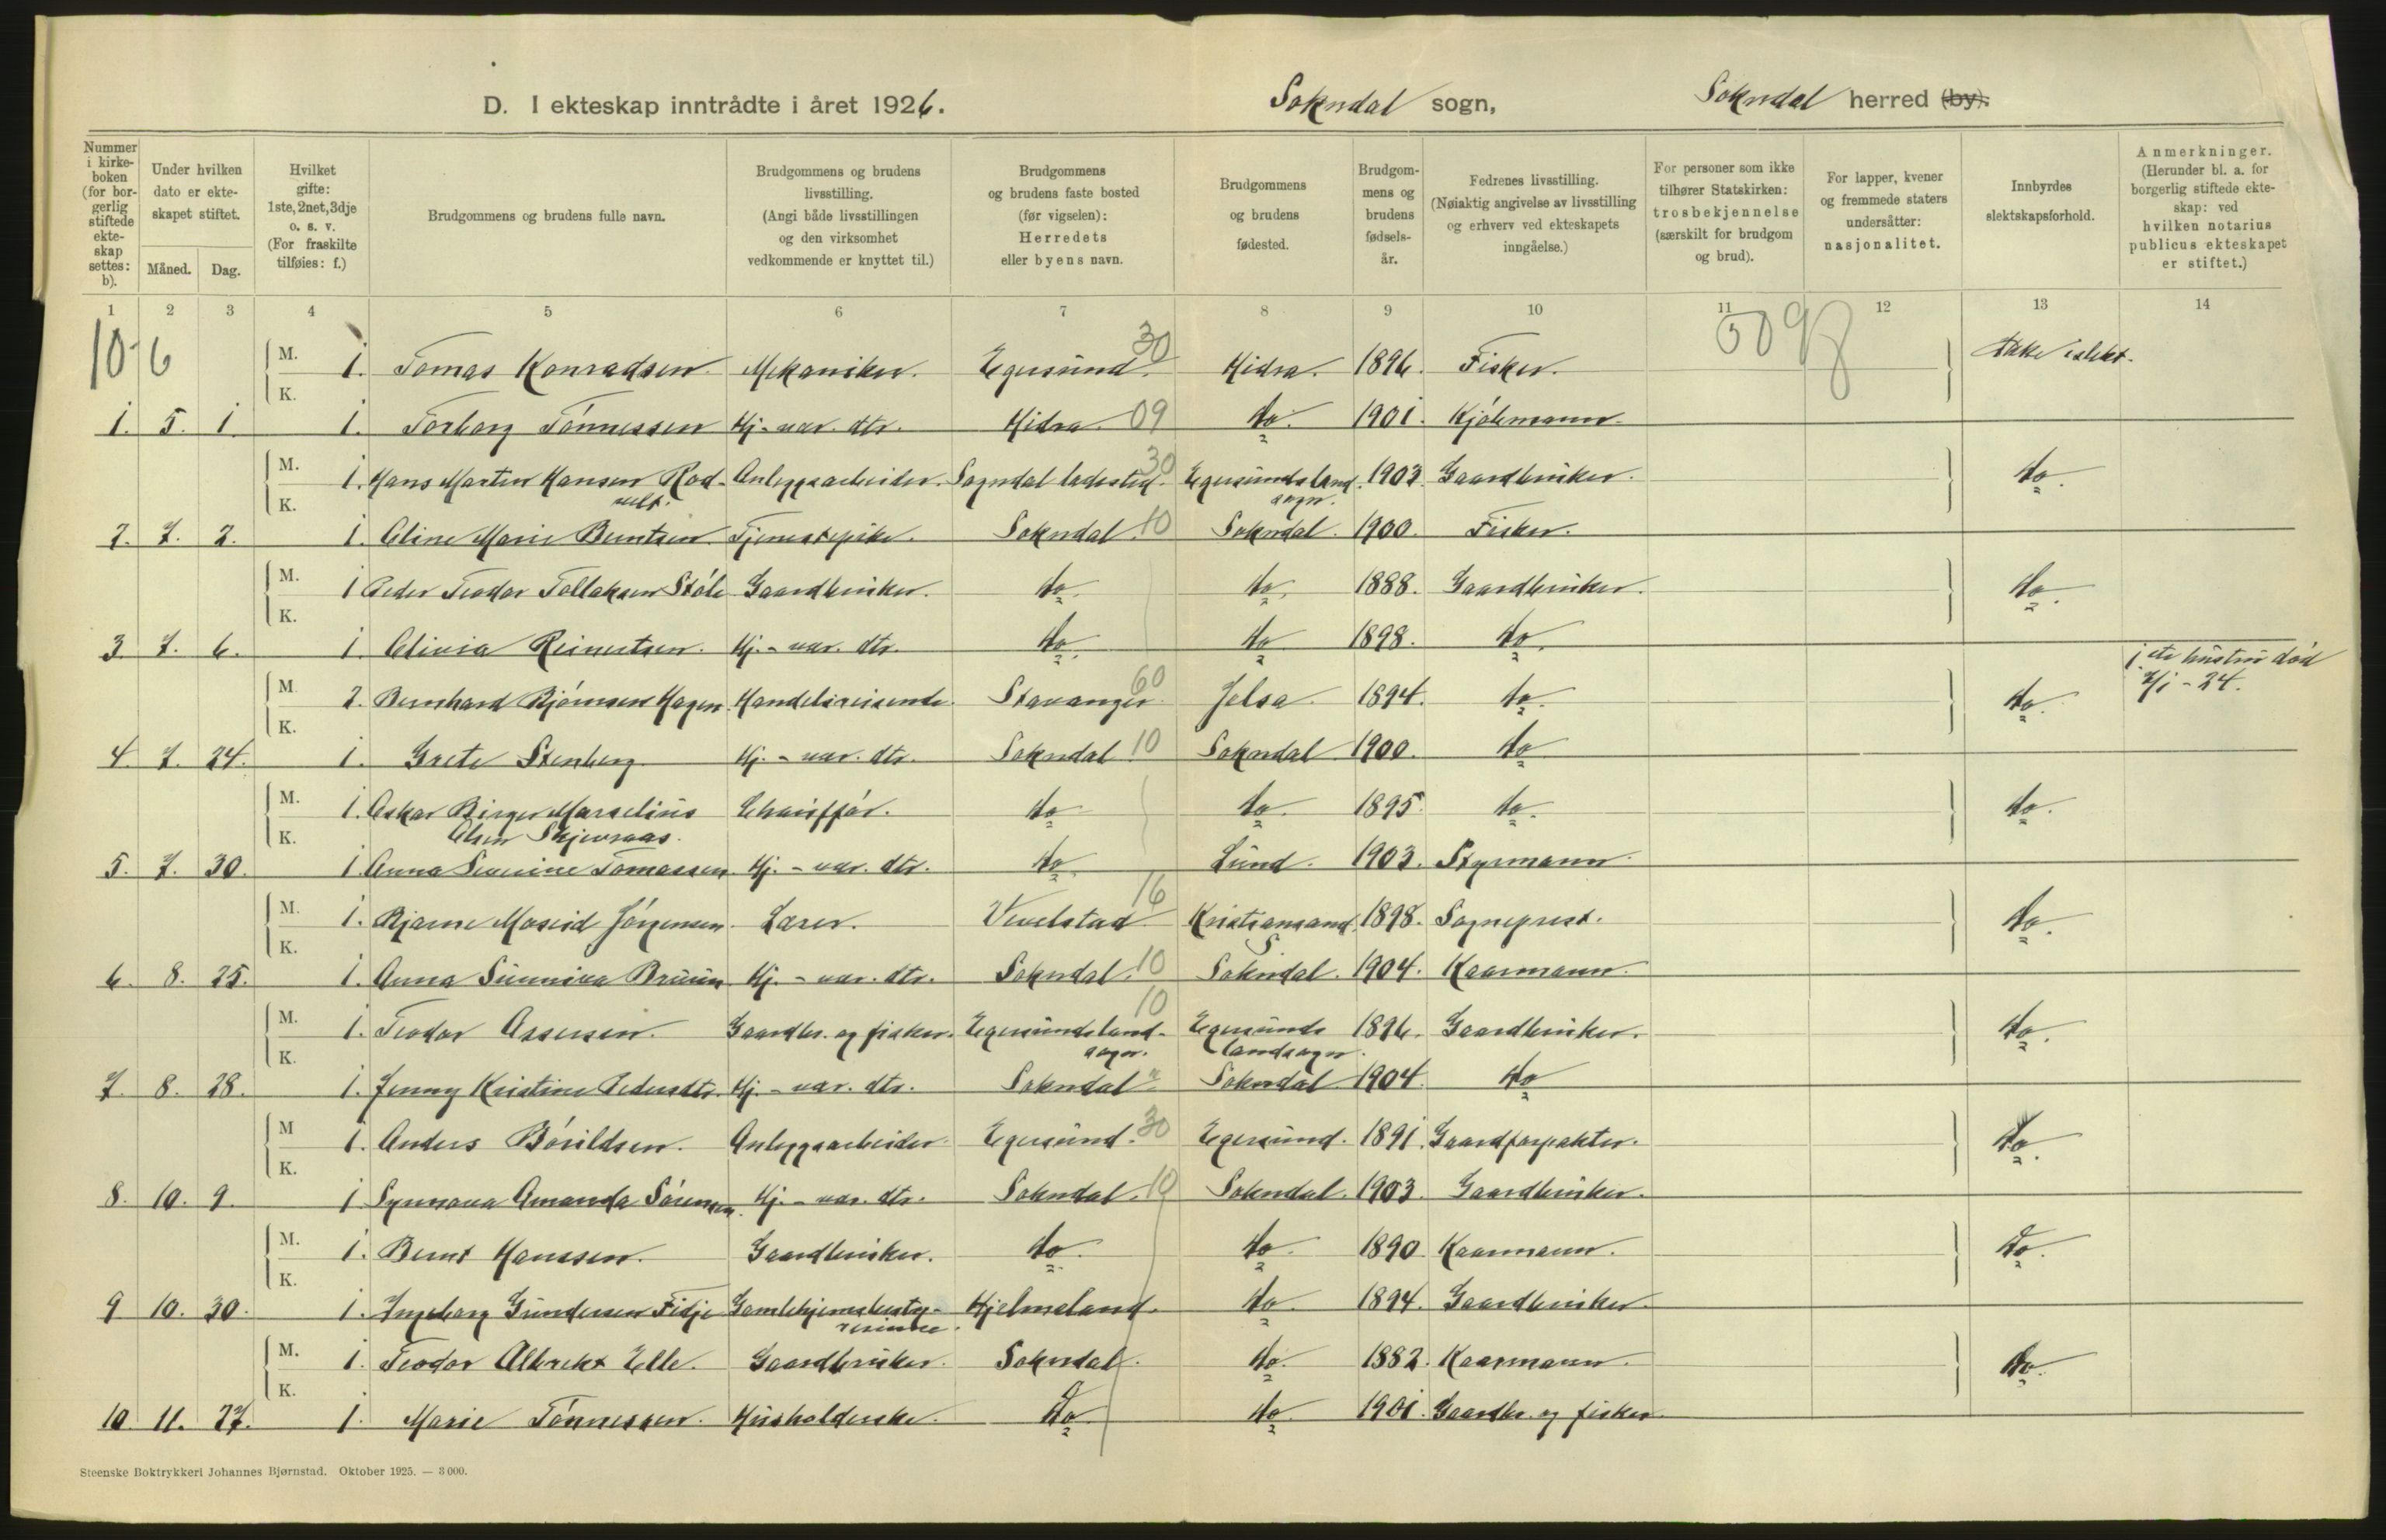 D. I ekteskap inntrådte i året 1926. Sokndal sogn, Sokndal herred (by).
Nummer i kirkeboken (for borgerlig stiftede ekteskap settes: b).
Under hvilken dato er ekteskapet stiftet.
Måned. Dag.
Hvilket gifte: 1ste, 2net, 3dje o. s. v. (For fraskilte tilføies: f.)
Brudgommens og brudens fulle navn.
Brudgommens og brudens livsstilling. (Angi både livsstillingen og den virksomhet vedkommende er knyttet til.)
Brudgommens og brudens faste bosted (før vigselen): Herredets eller byens navn.
Brudgommens og brudens fødested.
Brudgommens og brudens fødselsår.
Fedrenes livsstilling. (Nøiaktig angivelse av livsstilling og erhverv ved ekteskapets inngåelse.)
For personer som ikke tilhører Statskirken: trosbekjennelse (særskilt for brudgom og brud).
For lapper, kvener og fremmede staters undersåtter: nasjonalitet.
Innbyrdes slektskapsforhold.
Anmerkninger. (Herunder bl. a. for borgerlig stiftede ekteskap: ved hvilken notarius publicus ekteskapet er stiftet.)
1 2 3 4 5 6 7 8 9 10 11 12 13 14
10-6 M. 1. Tomas Konradsen. Mekaniker. Egersund. 30 Hidra. 1896. Fisker. Ikke i slekt.
K.
1. 5. 1. 1. Torborg Tönnessen Hj.-vær. dtr. Hidra 09 do. 1901. Kjöbmann.
M. 1. Hans Martin Hansen Rod- Anleggsarbeider. Sogndal ladested. 30 Egersunds land- 1903. Gaardbruker. do.
K. sogn.
2. 7. 2. 1. Oline Marie Berntsen. Tjenestepike. Sokndal. 10 Sokndal. 1900. Fisker.
M. 1 Peder Teodor Tollaksen Stöle Gaardbruker. do. do. 1888. Gaardbruker. do.
K.
3. 7. 6. 1. Olivia Reinertsen. Hj.-vær. dtr. do. do 1898. do.
M. 2. Bernhard Björnsen Hagen. Handelsreisende. Stavanger. 60 Jelsa. 1894. do. do. 1ste hustru död
K. 2/1-24.
4. 7. 24. 1. Grete Stenberg Hj.-vær. dtr. Sokndal. 10 Sokndal 1900. do
M. 1. Oskar Birger Marselius Chaufför. do do. 1895. do. do.
K. Olsen Skjevraas.
5. 7. 30. 1. Anna Severine Tomassen Hj.-vær. dtr. do. Lund. 1903. Styrmann.
M. 1. Bjarne Moseid Jörgensen Lærer. Vevelstad 16 Kristiansand 1898. Sogneprest. do.
K. S
6. 8. 25. 1. Anna Sunniva Bruun Hj.-vær. dtr. Sokndal. 10 Sokndal. 1904. Kaarmann.
M. 1. Teodor Assersen. Gaardbr. og fisker. Egersundsland- 10 Egersunds 1896. Gaardbruker. do.
K. sogn. landsogn.
7. 8. 28. 1. Jenny Kristine Pedersdtr. Hj.-vær. dtr. Sokndal Sokndal 1904. do
M 1. Anders Börildsen. Anleggsarbeider. Egersund. 30 Egersund. 1891. Gaardforpakter. do.
K.
8. 10. 9. 1 Synnova Amanda Sörensen. Hj.-vær. dtr. Sokndal. 10 Sokndal. 1903. Gaardbruker.
M. 1. Bernt Hanssen. Gaardbruker. do. do. 1890. Kaarmann. do.
K.
9 10. 30. 1. Ingeborg Gundersen Fidje Gamlehjemsbesty- Hjelmeland. do. 1894. Gaardbruker.
rerinne.
M. 1. Teodor Albrekt Elle. Gaardbruker. Sokndal. do. 1882. Kaarmann. do.
K.
10. 11. 27. 1. Marie Tönnessen. Husholderske. do do. 1901. Gaardbr. og fisker.
Steenske Boktrykkeri Johannes Bjørnstad. Oktober 1925. — 3 000.